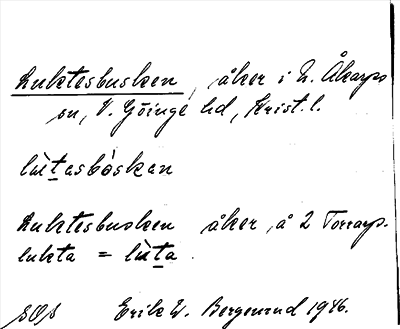 Luktesbusken, åker i N. Åkarps
sn, V. Göinge hd, Krist. l.
lùtasbòskan
Luktesbusken åker, å 2 Torrarp.
lukta = lùta
SOS Erik W. Bergenrud 1946.